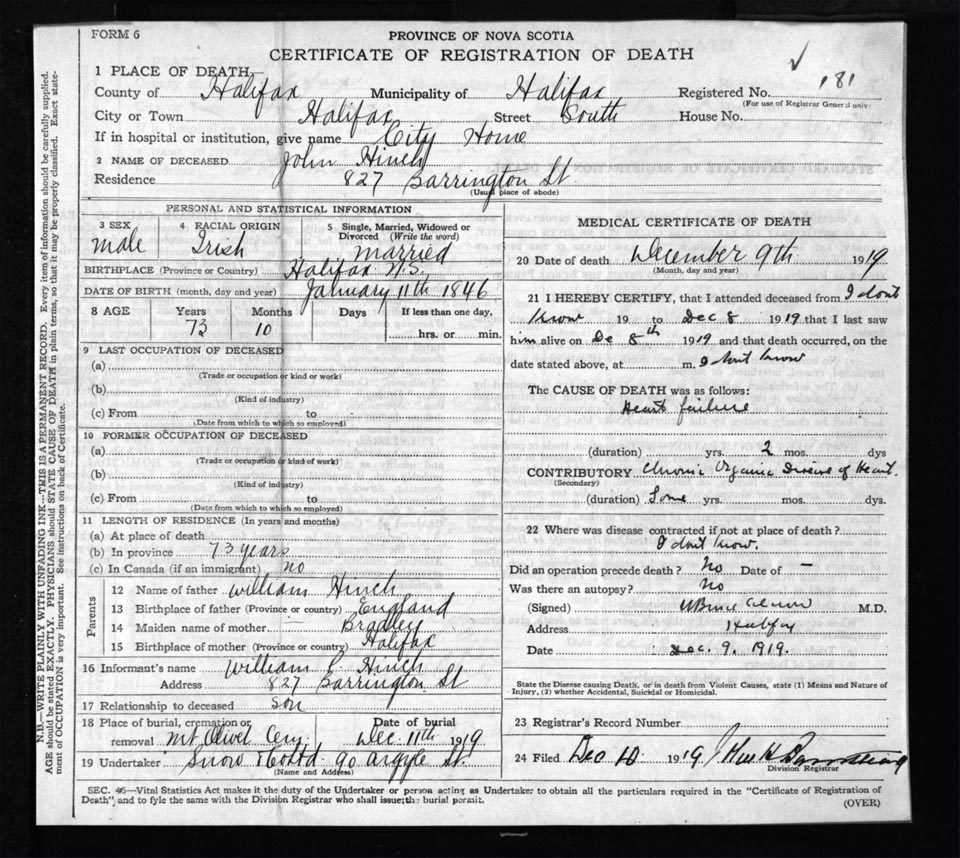 FORM 6
PROVINCE OF NOVA SCOTIA
CERTIFICATE OF REGISTRATION OF DEATH
181
1 PLACE OF DEATH—
County of Halifax Municipality of Halifax Registered No.
(For use of Registrar General only)
City or Town Halifax Street South House No.
If in hospital or institution, give name City Home
2 NAME OF DECEASED John Hinch
Residence 827 Barrington St
(Usual place of abode)
PERSONAL AND STATISTICAL INFORMATION
3 SEX 4 RACIAL ORIGIN 5 Single, Married, Widowed or Divorced (Write the word)
male Irish married
BIRTHPLACE (Province or Country) Halifax N.S.
DATE OF BIRTH (month, day and year) January 11th 1846
8 AGE Years Months Days If less than one day,
73 10 hrs. or min.
9 LAST OCCUPATION OF DECEASED
(a)
(Trade or occupation or kind or work)
(b)
(Kind of industry)
(c) From to
(Date from which to which so employed)
10 FORMER OCCUPATION OF DECEASED
(a)
(Trade or occupation or kind of work)
(b)
(Kind of industry)
(c) From to
(Date from which to which so employed)
11 LENGTH OF RESIDENCE (In years and months)
(a) At place of death
(b) In province 73 years
(c) In Canada (if an immigrant) no
Parents
12 Name of father William Hinch
13 Birthplace of father (Province or country) England
14 Maiden name of mother Bradley
15 Birthplace of mother (Province or country) Halifax
16 Informant's name William Hinch
Address 827 Barrington St
17 Relationship to deceased son
18 Place of burial, cremation or removal Mt Olivet Cem, Date of burial Dec. 11th 1919
19 Undertaker Snow & Co Ltd 90 Argyle St.
(Name and Address)
MEDICAL CERTIFICATE OF DEATH
20 Date of death December 9th 1919
(Month, day and year)
21 I HEREBY CERTIFY, that I attended deceased from I dont
know 19 to Dec 8 1919 that I last saw
him alive on De 8th 1919 and that death occurred, on the
date stated above, at m. I dont know
The CAUSE OF DEATH was as follows:
Heart failure
(duration) yrs. 2 mos. dys
CONTRIBUTORY Chronic Organic Disease of Heart.
(Secondary)
(duration) Some yrs. mos. dys.
22 Where was disease contracted if not at place of death?
I dont know.
Did an operation precede death? No Date of —
Was there an autopsy? No
(Signed) M.D.
Address Halifax
Date Dec. 9. 1919.
State the Disease causing Death, or in death from Violent Causes, state (1) Means and Nature of
Injury, (2) whether Accidental, Suicidal or Homicidal.
23 Registrar's Record Number
24 Filed Dec 10 1919
Division Registrar
SEC. 46—Vital Statistics Act makes it the duty of the Undertaker or person acting as Undertaker to obtain all the particulars required in the "Certificate of Registration of
Death", and to fyle the same with the Division Registrar who shall issue the burial permit.
(OVER)
N.B.—WRITE PLAINLY WITH UNFADING INK—THIS IS A PERMANENT RECORD. Every item of information should be carefully supplied.
AGE should be stated EXACTLY. PHYSICIANS should STATE CAUSE OF DEATH in plain terms, so that it may be properly classified. Exact state-
ment of OCCUPATION is very important. See instructions on back of Certificate.